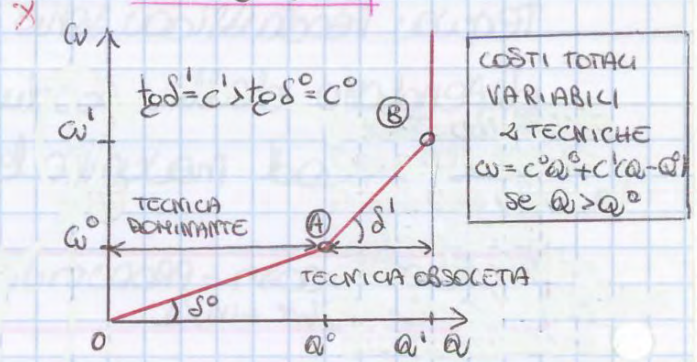 X
CV
CV'
CV⁰
tgδ'=c'>tgδ⁰=c⁰
B
TECNICA
DOMINANTE
A
δ'
TECNICA OBSOLETA
δ⁰
O
Q⁰
Q'
Q
COSTI TOTALI
VARIABILI
2 TECNICHE
CV=C⁰Q⁰+C'(Q-Q⁰)
se Q>Q⁰